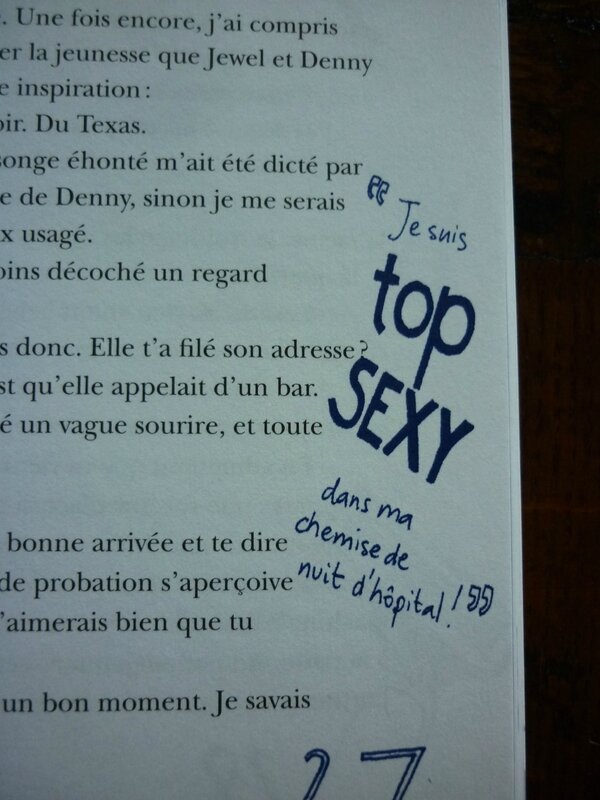 . Une fois encore, j'ai compris
er la jeunesse que Jewel et Denny
e inspiration :
oir. Du Texas.
songe éhonté m'ait été dicté par
e de Denny, sinon je me serais
x usagé.
oins décoché un regard
s donc. Elle t'a filé son adresse ?
st qu'elle appelait d'un bar.
é un vague sourire, et toute
bonne arrivée et te dire
de probation s'aperçoive
'aimerais bien que tu
un bon moment. Je savais
"Je suis
top
SEXY
dans ma
chemise de
nuit d'hôpital !"
27